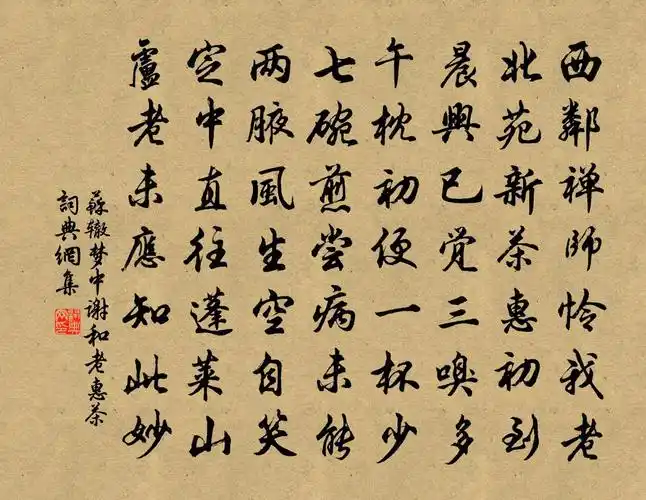 西鄰禅師怜我老
北苑新茶惠初到
晨興已觉三嗅多
午枕初便一杯少
七碗煎尝病未能
两腋風生空自笑
定中直往蓬莱山
盧老未應知此妙
蘇辙梦中谢和老惠茶
詞典網集